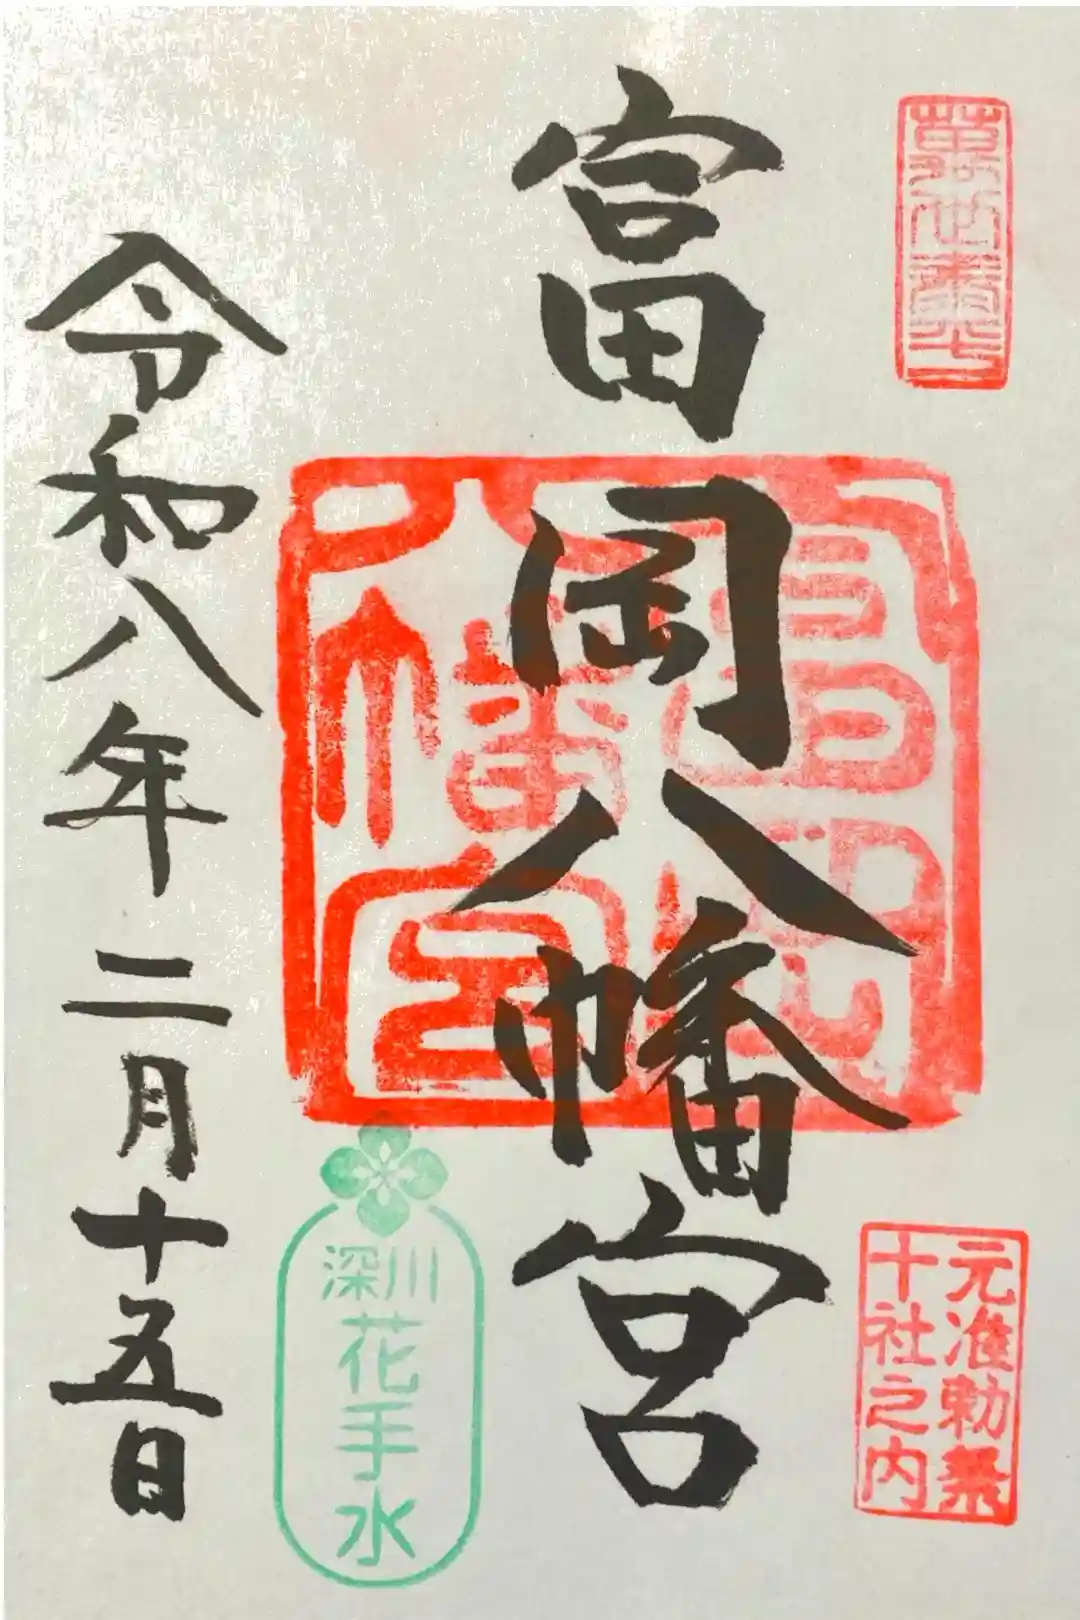 富岡八幡宮
元准勅祭
十社之内
富岡
八幡宮
深川
花手水
令和八年二月十五日